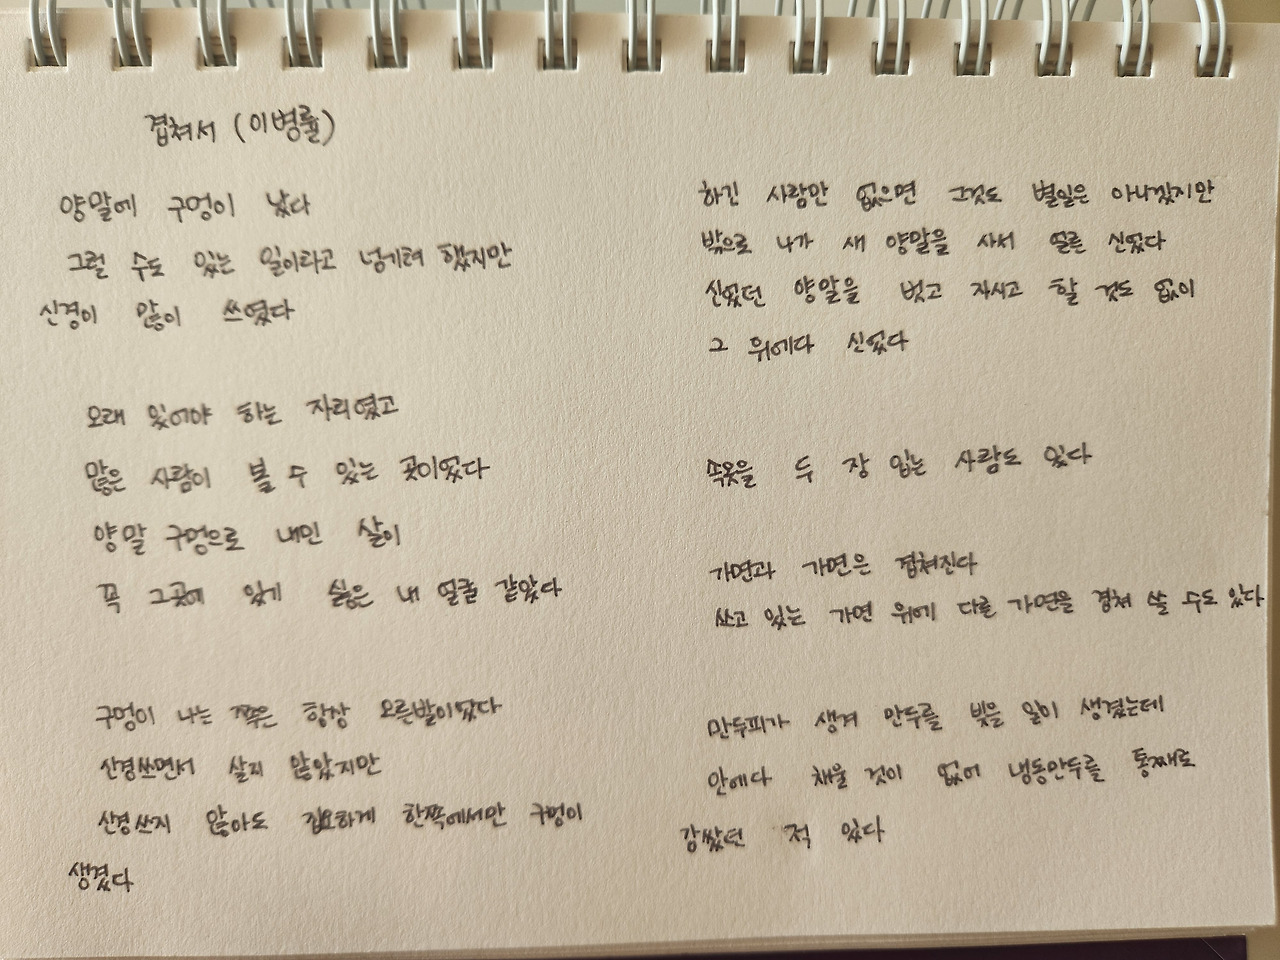 겹쳐서 (이병률)
양말에 구멍이 났다
그럴 수도 있는 일이라고 넘기려 했지만
신경이 많이 쓰였다
오래 있어야 하는 자리였고
많은 사람이 볼 수 있는 곳이었다
양말 구멍으로 내민 살이
꼭 그곳에 있기 싫은 내 얼굴 같았다
구멍이 나는 쪽은 항상 오른발이었다
신경쓰면서 살지 않았지만
신경 쓰지 않아도 집요하게 한쪽에서만 구멍이
생겼다
하긴 사람만 없으면 그것도 별일은 아니겠지만
밖으로 나가 새 양말을 사서 얼른 신었다
신었던 양말을 벗고 자시고 할 것도 없이
그 위에다 신었다
속옷을 두 장 입는 사람도 있다
가면과 가면은 겹쳐진다
쓰고 있는 가면 위에 다른 가면을 겹쳐 쓸 수도 있다
만두피가 생겨 만두를 빚을 일이 생겼는데
안에다 채울 것이 없어 냉동만두를 통째로
감쌌던 적 있다